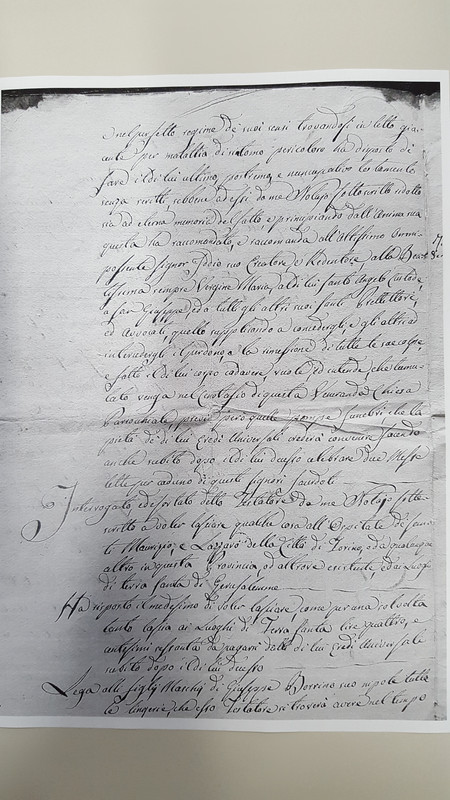 nel perfetto regime de suoi sensi trovandosi in letto gia-
cente per malattia di notorio pericoloro ha disposto di
fare il di lui ultimo, postremo, e nuncupativo testamento
senza scritti, sebbene ad essi da me Notajo sottoscritto ridotto
sia ad eterna memoria del fatto, e principiando dall'Anima sua
questa ha raccomandato, e raccomanda all'Altissimo Omni-
possente Signor Iddio suo Creatore, e Redentore, alla Beat-
tissima sempre Vergine Maria, al di lui Santo Angelo Custode,
a San Giuseppe, ed a tutti gli altri suoi Santi Protettori,
ed Avvocati, quello supplicando a concedergli, e gli altri ad
intercedergli il perdono, e la rimessione di tutte le sue colpe,
e fatto il di lui corpo cadavere, vuole, ed intende che tumu-
lato venga nel di questa Veneranda Chiesa
Parrochiale, previe però quelle pompe funebri che la
pietà de' di lui Eredi Universali crederà convenire, facendo
anche subito dopo il di lui decesso celebrare due Messe
lette per caduno di questi Signori Sacerdoti
Interrogato, ed esortato detto Testatore da me Notajo sotto-
scritto a voler lasciare qualche cosa all'Ospitale de' San-
ti Maurizio, e Lazzaro della Città di Torino, od a qualunque
altro in questa Provincia od altrove esistente, ed ai Luoghi
di terra Santa di Gerusalemme
Ha risposto il medesimo di voler lasciare, come per una sol volta
tanto lascia ai Luoghi di Terra Santa lire quattro, e
centesimi sessanta da pagarsi dalli di lui Eredi Universale
subito dopo il di lui decesso
Lega alli figlj Maschj di Giuseppe Borrino suo nipote tutta
la lingeria, che esso Testatore si troverà avere nel tempo